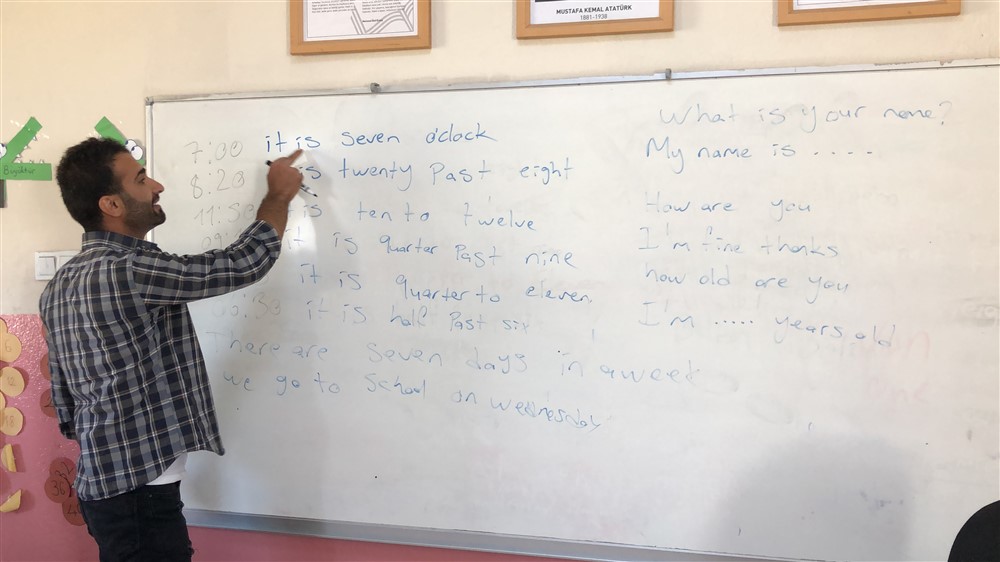 MUSTAFA KEMAL ATATÜRK
1881-1938
7:00 it is seven o'clock
8:20 is twenty past eight
is ten to twelve
it is quarter past nine
it is quarter to eleven.
it is half past six
There are seven days in a week
we go to school on wednesday
What is your name?
My name is . . . . .
How are you
I'm fine thanks
how old are you
I'm ..... years old